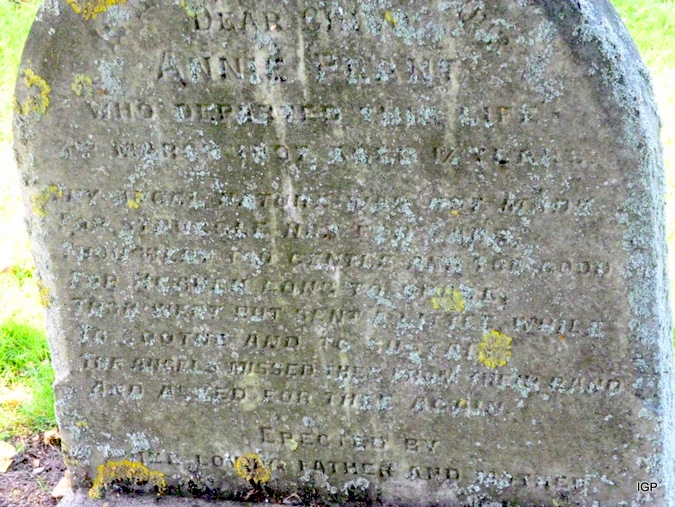 DEAR CHILD
ANNIE PLANT
WHO DEPARTED THIS LIFE
MARCH 1897, AGED 17 YEARS.
THY ANGEL NATURE WAS NOT MADE
FOR STRUGGLE NOR FOR CARE
THOU WERT TOO GENTLE AND TOO GOOD
FOR HEAVEN LONG TO SPARE,
THOU WERT BUT SENT A LITTLE WHILE
TO SOOTHE AND TO SUSTAIN
THE ANGELS MISSED THEE FROM THEIR BAND
AND ASKED FOR THEE AGAIN.
ERECTED BY
LOVING FATHER AND MOTHER
IGP